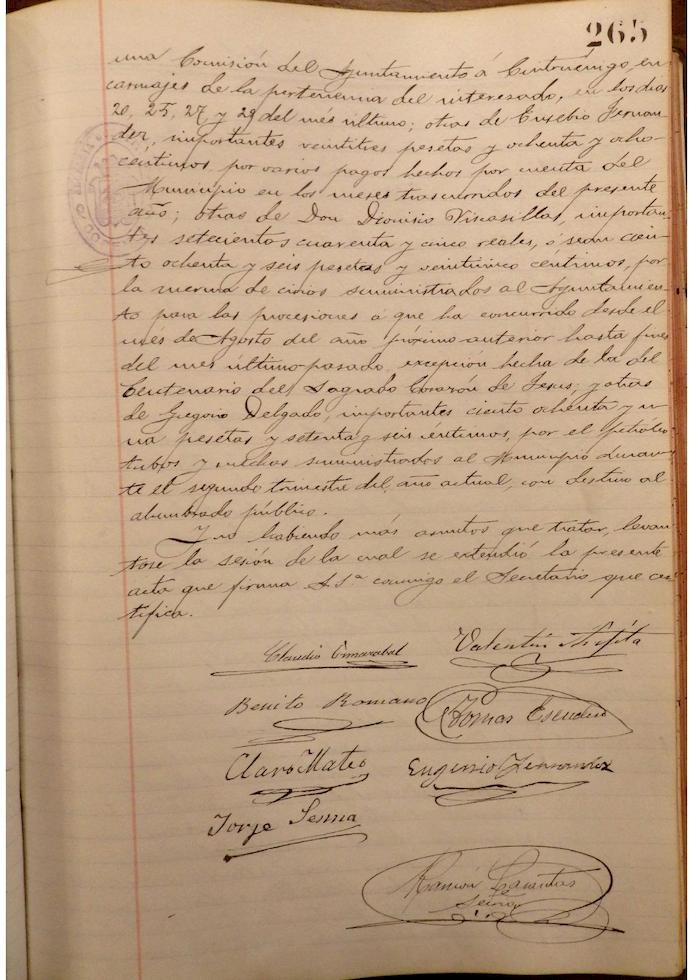 265
una Comisión del Ayuntamiento á Cintruénigo, en
carruajes de la pertenencia del interesado, en los dias
20, 25, 27 y 29 del mes último; otras de Eusebio Fernan-
dez, importantes veintitres pesetas y ochenta y ocho
céntimos por varios pagos hechos por cuenta del
Municipio en los meses trascurridos del presente
año; otras de Don Dionisio Viscasillas, importan-
tes setecientos cuarenta y cinco reales, ó sean cien-
to ochenta y seis pesetas y veinticinco centimos, por
la merma de cirios suministrados al Ayuntamien-
to para las procesiones á que ha concurrido desde el
més de Agosto del año próximo anterior hasta fines
del mes último pasado, excepción hecha de la del
Centenario del Sagrado Corazón de Jesus; y otras
de Gregorio Delgado, importantes ciento ochenta y u-
na pesetas y setenta y seis céntimos, por el petroleo
tubos y mechas suministrados al Municipio duran-
te el segundo trimestre del año actual, con destino al
alumbrado público.
Y no habiendo más asuntos que tratar, levan-
tóse la sesión de la cual se extendió la presente
acta que firma S. Sª conmigo el Secretario que cer-
tifica.
Claudio Valentín
Benito Romano Tomas Escudero
Claro Mateo Eugenio Fernandez
Jorje Sesma
Ramón
Seño